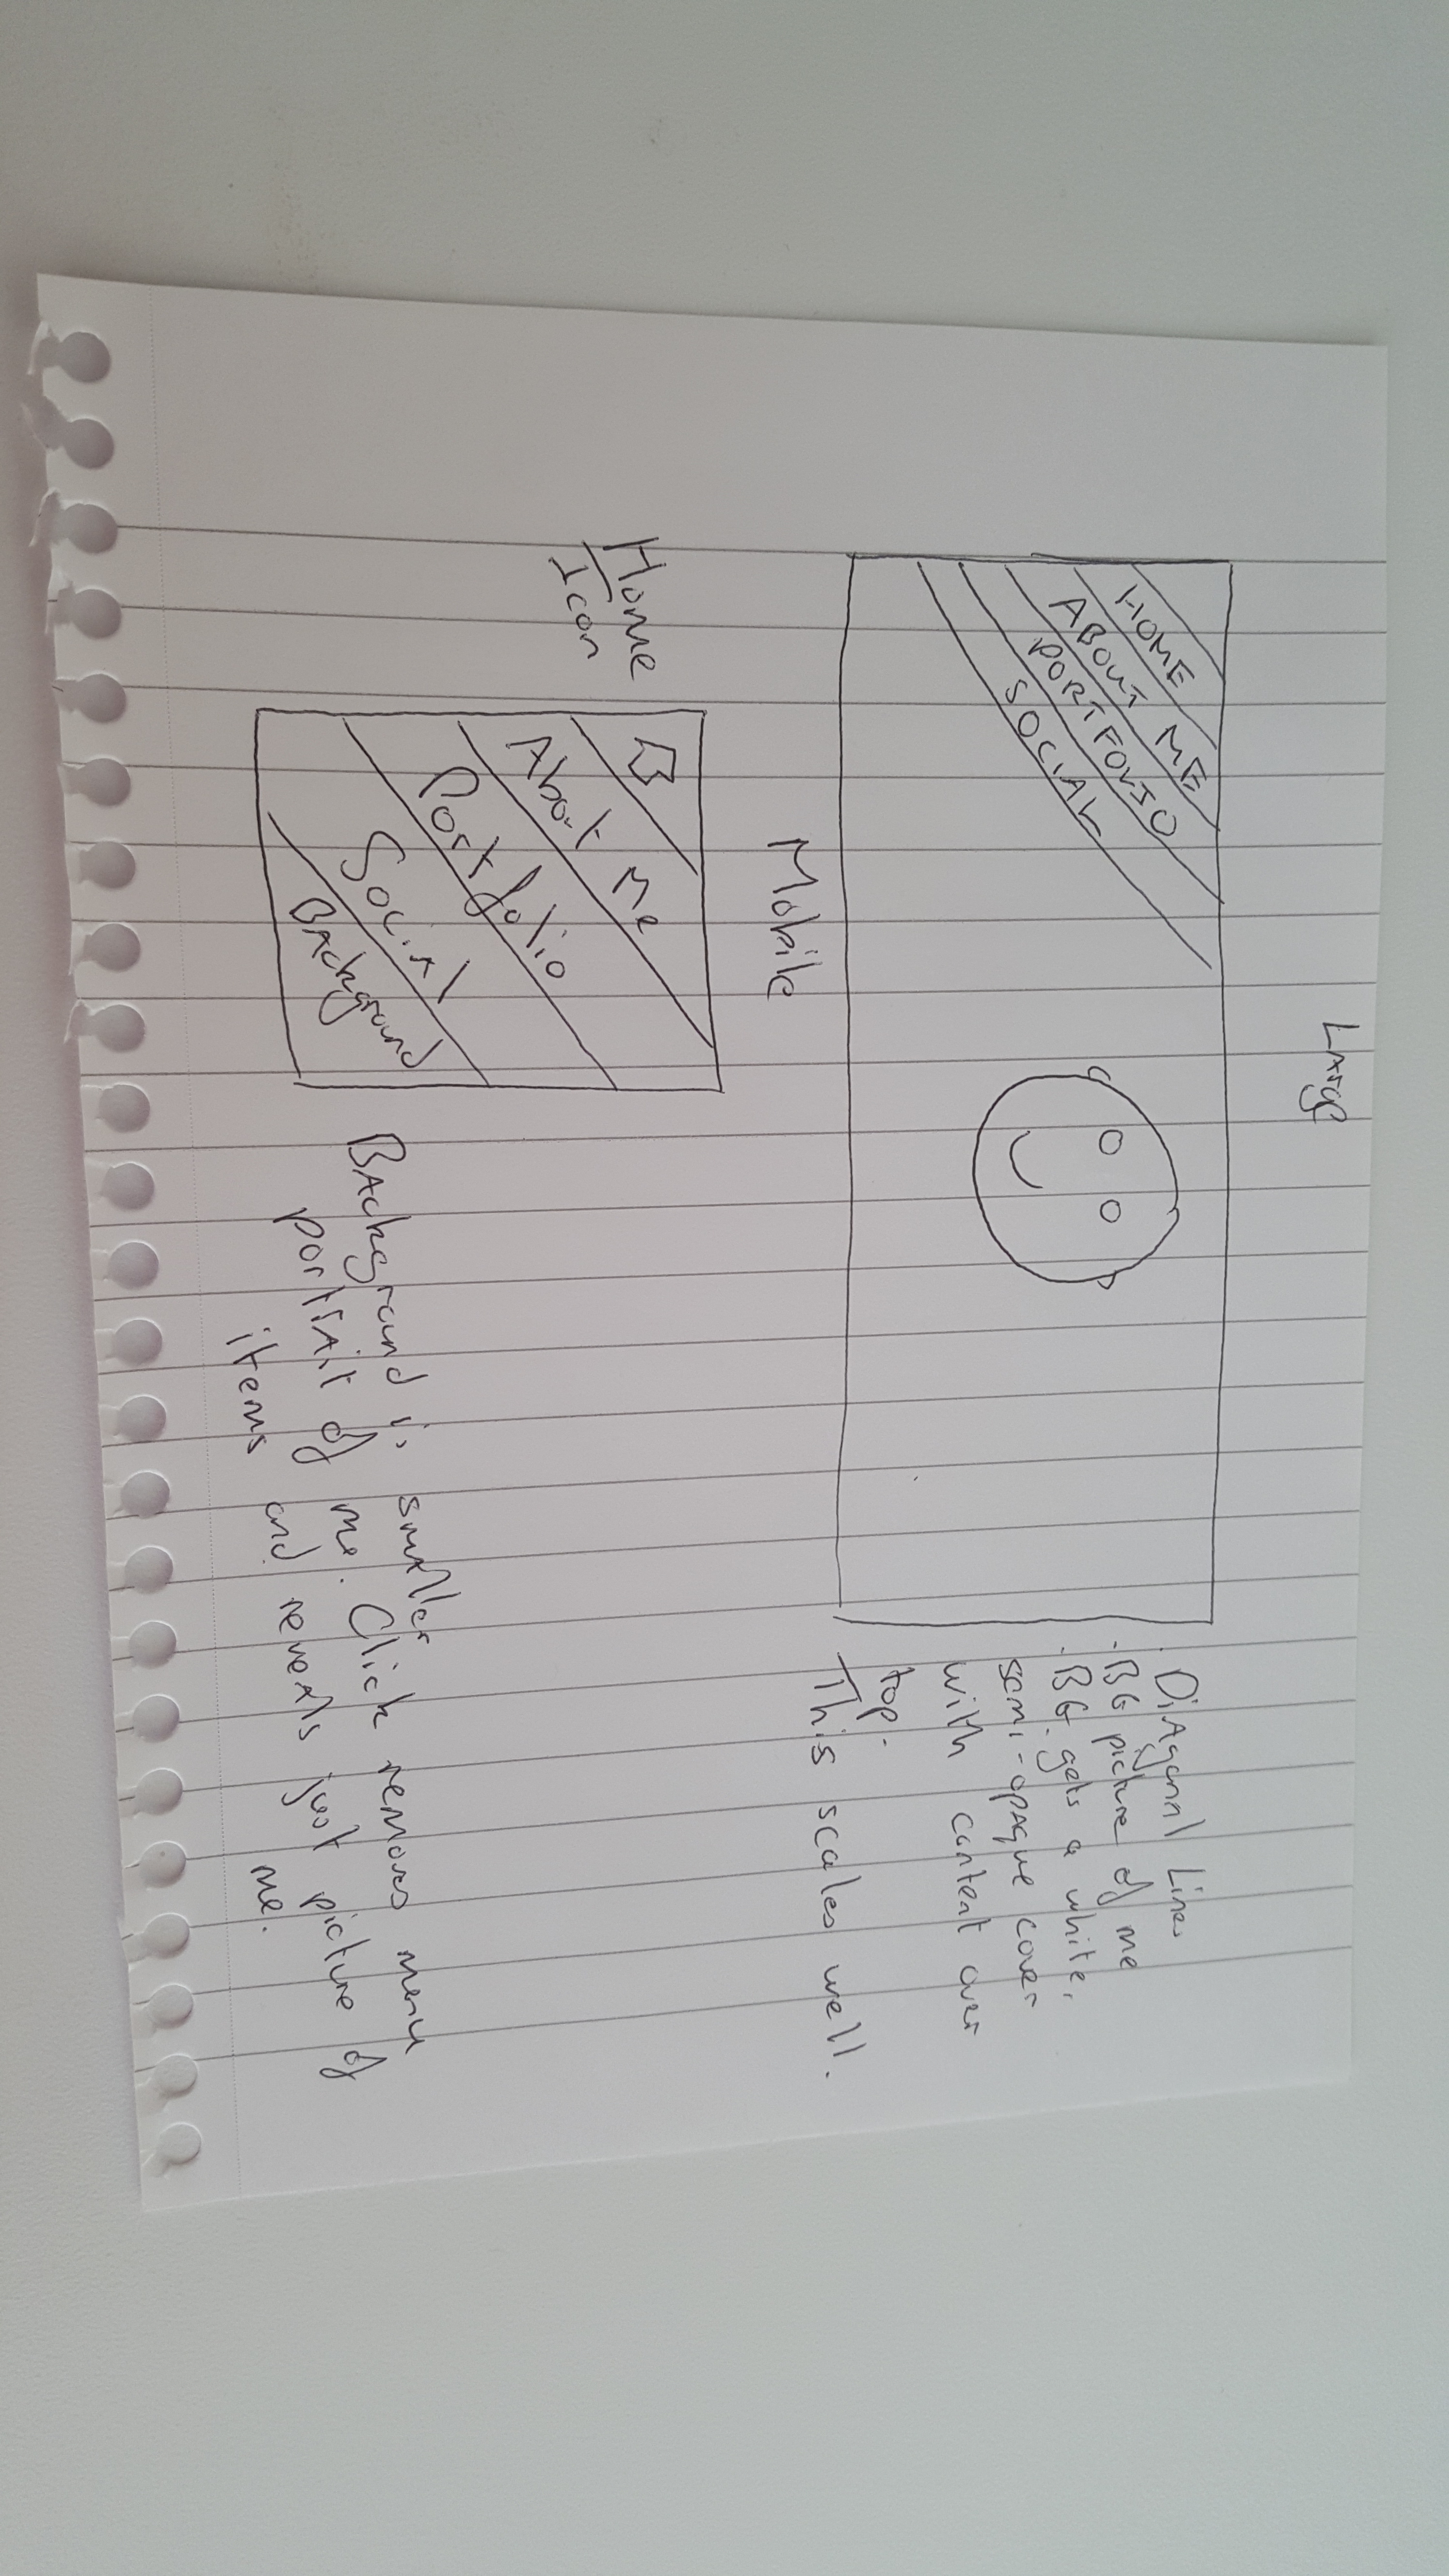 Large
HOME
ABOUT ME
PORTFOLIO
SOCIAL
. Diagonal Lines
. BG picture of me
. BG. gets a white,
semi-opaque cover
with content over
top.
This scales well.
Mobile
Home
Icon
About Me
Portfolio
Social
Background
Background is smaller
portrait of me. Click removes menu
items and reveals just picture of
me.